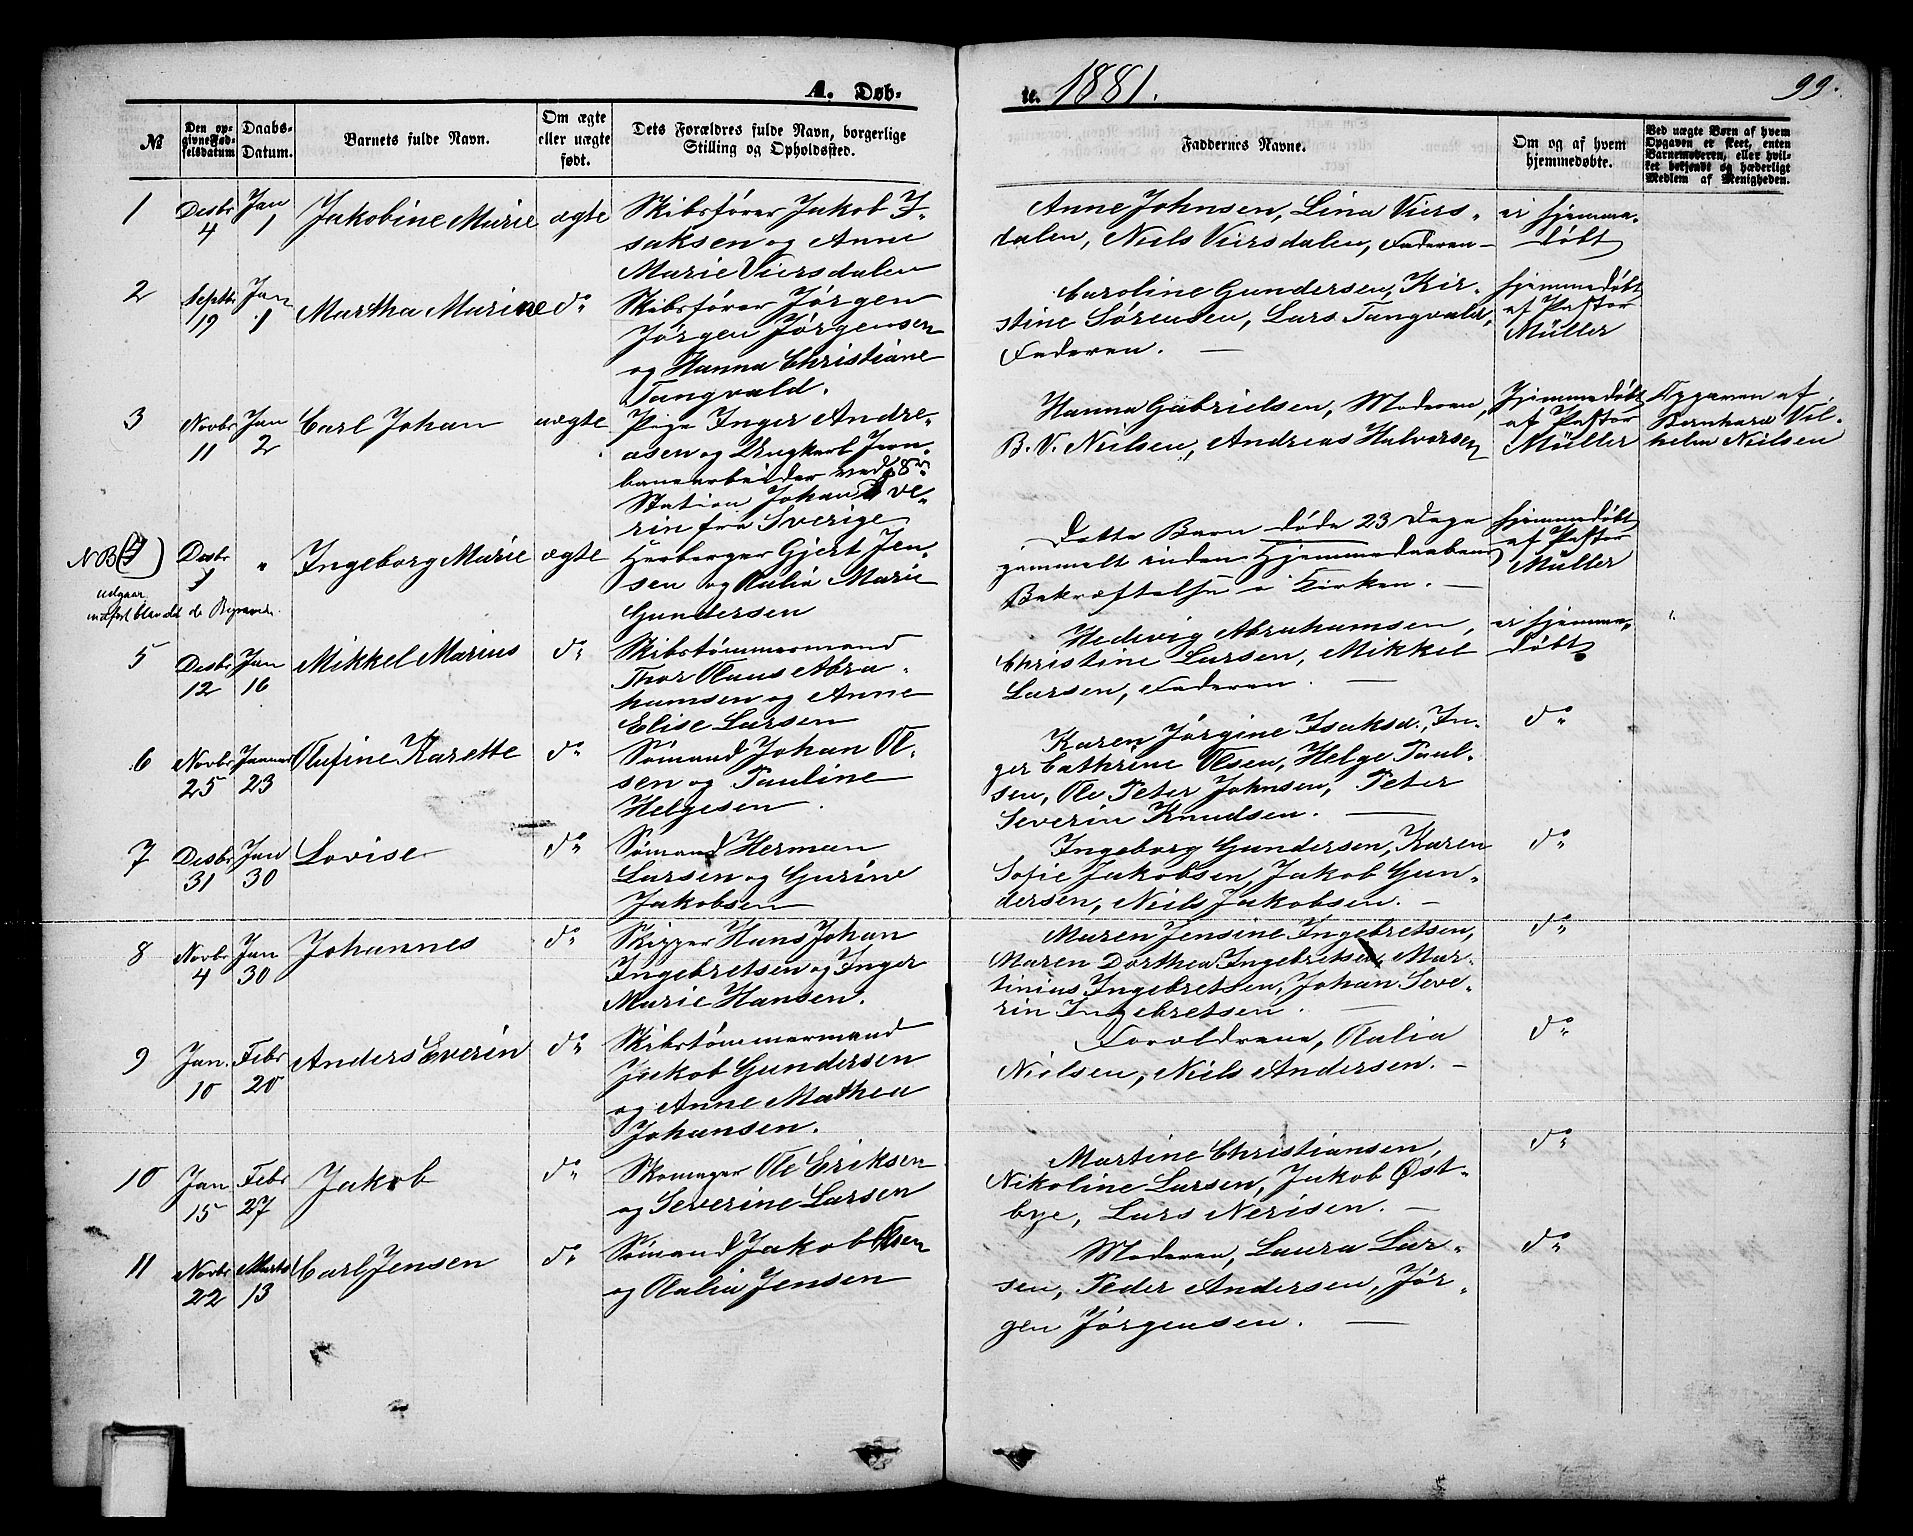 A. Døb-
te. 1881.
99.
№
Den op-
givne Fød-
selsdatum
Daabs-
Datum.
Barnets fulde Navn.
Om ægte
eller uægte
født.
Dets Forældres fulde Navn, borgerlige
Stilling og Opholdssted.
Faddernes Navne.
Om og af hvem
hjemmedøbte.
Ved uægte Børn af hvem
Opgaven er skeet, enten
Barnemoderen, eller hvil-
ket bekjendt og hæderligt
Medlem af Menigheden.
1
Desbr
4
Jan
1
Jakobine Marie
ægte
Skibsfører Jakob I-
saksen og Anne
Marie Viersdalen
Anne Johnsen, Lina Viers-
dalen, Niels Viersdalen, Faderen –
ei hjemme-
døbt
2
Septbr
19
Jan
1
Martha Marine
do
Skibsfører Jørgen
Jørgen Jørgensen
og Hanna Christiane
Tangvald.
Caroline Gundersen, Kir-
stine Sørensen, Lars Tangvald,
Faderen. –
hjemmedøbt
af Pastor
Müller
3
Novbr
11
Jan
2
Carl Johan
uægte
Pige Inger Andre-
asen og Ungkarl Jern-
banearbeider ved 8de
Station Johan Seve-
rin fra Sverige
Hanna Gabrielsen, Moderen,
B. V. Nielsen, Andreas Halvorsen
Hjemmedøbt
af Pastor
Müller
Opgaven af
Bernhard Vil-
helm Nielsen
NB (4)
udgaar
indført blandt de
Desbr
1
"
Ingeborg Marie
ægte
Herberger Gjert Jen-
sen og Olalia Marie
Gundersen
Dette Barn døde 23 Dage
gammelt inden Hjemmedaabens
Bekræftelse i Kirken. –
hjemmedøbt
af Pastor
Müller
5
Desbr
12
Jan
16
Mikkel Marius
do
Skibstømmermand
Thor Olaus Abra-
hamsen og Anne
Elise Larsen
Hedvig Abrahamsen,
Christine Larsen, Mikkel
Larsen, Faderen. –
ei hjemme-
døbt
6
Novbr
25
Januar
23
Olufine Karette
do
Sømand Johan Ol-
sen og Pauline
Helgesen.
Karen Jørgine Isaksd., In-
ger Cathrine Olsen, Helge Paul-
sen, Ole Peter Johnsen, Peter
Severin Knudsen. –
do
7
Desbr
31
Jan
30
Lovise
do
Sømand Herman
Larsen og Gurine
Jakobsen
Ingeborg Gundersen, Karen
Sofie Jakobsen, Jakob Gun-
dersen, Niels Jakobsen. –
do
8
Novbr
4
Jan
30
Johannes
do
Skipper Hans Johan
Ingebretsen og Inger
Marie Hansen.
Maren Jensine Ingebretsen,
Maren Dorthea Ingebretsen, Mar-
tinius Ingebretsen, Johan Seve-
rin Ingebretsen. –
do
9
Jan.
10
Febr
20
Anders Everin
do
Skibstømmermand
Jakob Gundersen
og Anne Mathea
Johansen.
Forældrene, Olalia
Nielsen, Niels Andersen. –
do
10
Jan
15
Febr
27
Jakob
do
Skomager Ole Eriksen
og Severine Larsen
Martine Christiansen,
Nikoline Larsen, Jakob Øst-
bye, Lars Nerisen. –
do
11
Novbr
22
Marts
13
Carl Jensen
do
Sømand Jakob Olsen
og Olalia Jensen
Moderen, Laura Lar-
sen, Peder Andersen, Jør-
gen Jørgensen. –
do